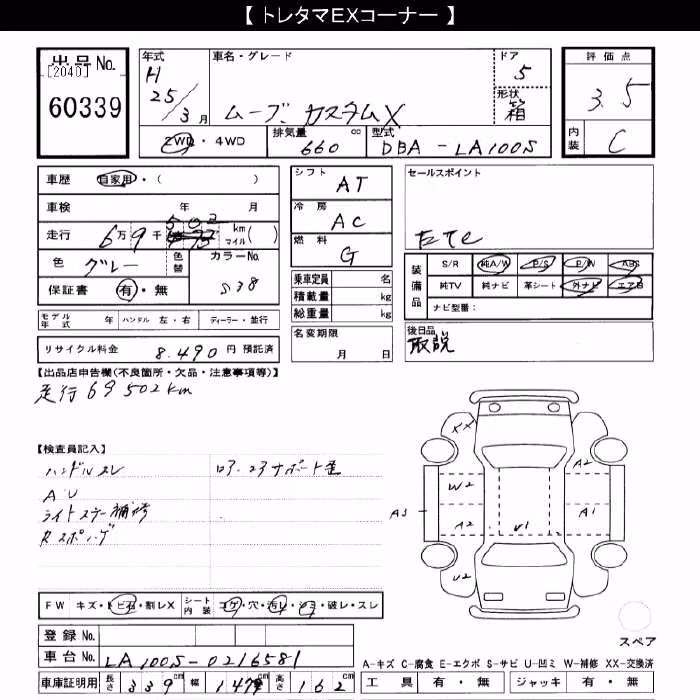 【 トレタマEXコーナー 】
出品 No.
[2040]
60339
年式
H
25/3月
車名・グレード
ムーブ カスタムX
ドア
5
形状
箱
評価点
3.5
内装
C
2WD・4WD
排気量
660 cc
型式
DBA - LA100S
車歴 自家用・( )
車検 年 月
走行 6万9千502 km マイル( )
色 グレー 色替 カラーNo. S38
保証書 有・無
モデル年式 年 ハンドル 左・右 ディーラー・並行
リサイクル料金 8.490 円 預託済
シフト AT
冷房 AC
燃料 G
乗車定員 名
積載量 kg
総重量 kg
名変期限
月 日
セールスポイント
装備品
S/R 純A/W P/S P/W ABS
純TV 純ナビ 革シート 外ナビ エアB
ナビ型番:
後日品
取説
【出品店申告欄(不良箇所・欠品・注意事項等)】
走行69502km
【検査員記入】
ハンドルスレ
AU
ライトステー補修
ロア.コアサポート歪
XX
A2
W2
A3
A2
U1
A1
U2
FW キズ・トビ石・割レX シート内装 コゲ・穴・汚レ・シミ・破レ・スレ
登録 No.
車台 No. LA100S-0216581
車庫証明用 長さ 339 cm 幅 147 cm 高さ 162 cm
スペア
A-キズ C-腐食 E-エクボ S-サビ U-凹ミ W-補修 XX-交換済
工具 有・無 ジャッキ 有・無